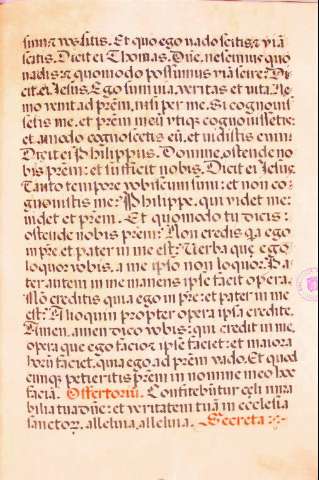 sum: et vos sitis. Et quo ego vado scitis: et viā
scitis. Dicit ei Thomas. Dn̄e, nescimus quo
vadis: et quomodo possumus viā scire? Di
cit ei Jesus. Ego sum via, veritas et vita. Ne
mo venit ad prēm, nisi per me. Si cognovi
setis me, et prēm meū vtiqȝ cognovissetis:
et amodo cognoscetis eū, et vidistis eum.
Dicit ei Philippus. Domine, ostende no
bis prēm: et sufficit nobis. Dicit ei Jesus.
Tanto tempore vobiscum sum: et non co
gnovistis me? Philippe, qui videt me:
videt et prēm. Et quomodo tu dicis:
ostende nobis prēm? Non credis qȝ ego
in pr̄e et pater in me est? Verba que ego
loquor vobis, a me ipso non loquor. Pa
ter autem in me manens ipse facit opera.
Nō creditis quia ego in pr̄e: et pater in me
est? Alioquin propter opera ipsa credite.
Amen, amen dico vobis: qui credit in me,
opera que ego facio: et ipse faciet: et maiora
horū faciet, quia ego ad prēm vado. Et quod
cumqȝ petieritis prēm in nomine meo hoc
faciā. Offertoriū. Confitebūtur celi mira
bilia tua dn̄e: et veritatem tuā in ecclesia
sanctoꝝ, alleluia, alleluia. Secreta